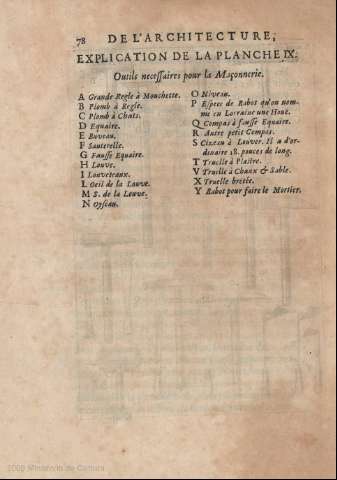 78 DE L'ARCHITECTURE,
EXPLICATION DE LA PLANCHE IX.
Outils necessaires pour la Maçonnerie.
A Grande Regle à Mouchette.
B Plomb à Regle.
C Plomb à Chats.
D Equaire.
E Buveau.
F Sauterelle.
G Fausse Equaire.
H Louve.
I Louveteaux.
L Oeil de la Louve.
M S. de la Louve.
N Oyseau.
O Niveau.
P Espece de Rabot qu'on nom-
me en Lorraine une Hout.
Q Compas à fausse Equaire.
R Autre petit Compas.
S Cizeau à Louver. Il a d'or-
dinaire 18. pouces de long.
T Truelle à Plaître.
V Truelle à Chaux & Sable.
X Truelle bretée.
Y Rabot pour faire le Mortier.
2009 Ministerio de Cultura